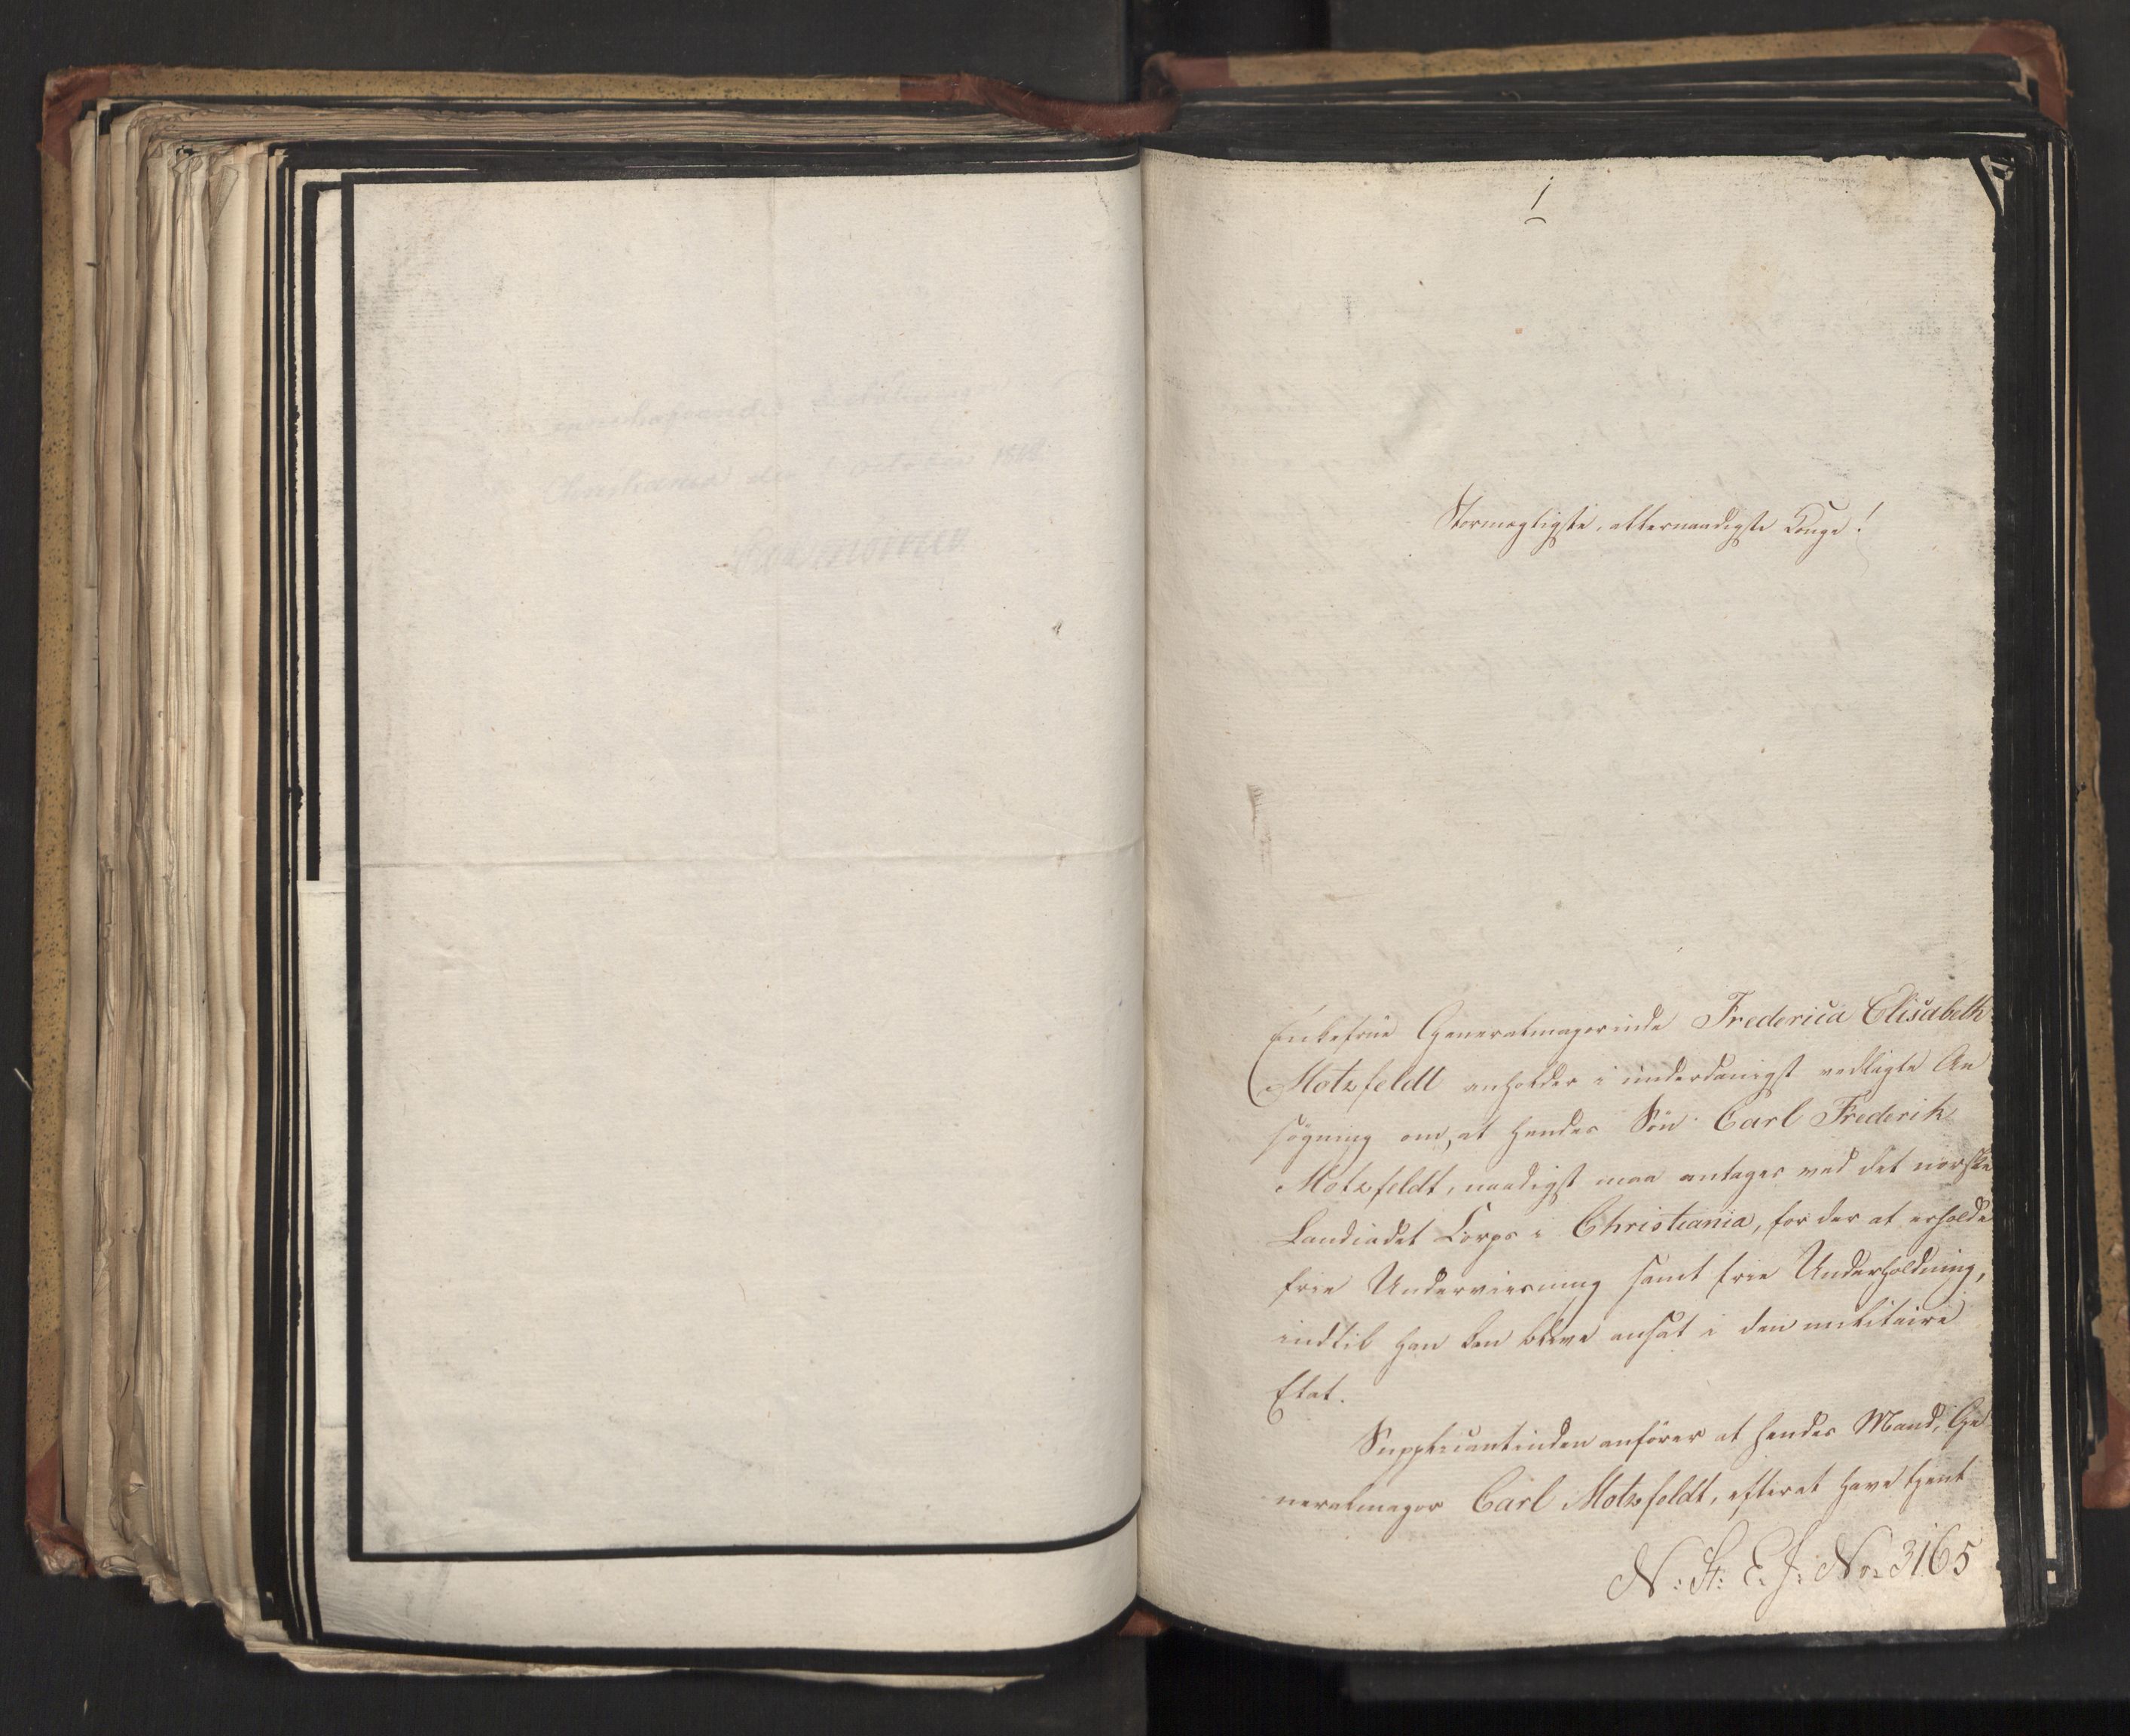 1
Stormægtigste, allernaadigste Konge!
Enkefrue Generalmajorinde Frederica Elisabeth
Motzfeldt anholder i underdanigst vedlagte An
søgning om, at hendes Søn Carl Frederik
Motzfeldt, naadigst maa antages ved det norske
Landcadet Corps i Christiania, for der at erholde
frie Underviisning samt frie Underholdning,
indtil han kan blive ansat i den militaire
Etat.
Supplicantinden anfører at hendes Mand, Ge
neralmajor Carl Motzfeldt, efterat have tjent
N: St: E. J: No: 3165